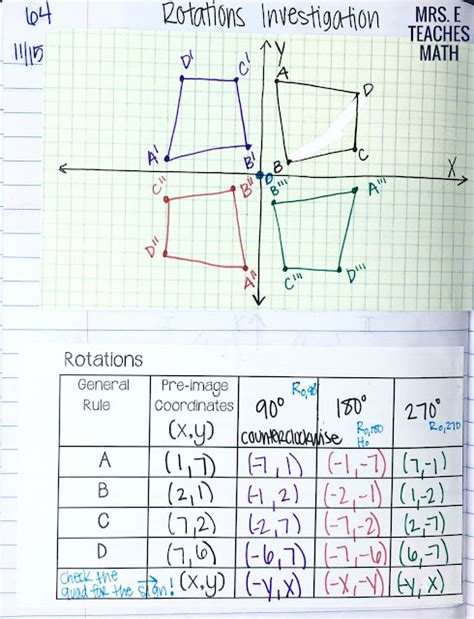 64
11/15
Rotations Investigation
MRS. E
TEACHES
MATH
Y
D'
C'
A
D
A'
B'
B
C
X
O
C''
B''
B'''
A'''
D''
A''
C'''
D'''
Rotations
General
Rule
Pre-image
Coordinates
(x,y)
90°
R0,90
counterclockwise
180°
R0,180
H0
270°
R0,270
A (1,7) (-7,1) (-1,-7) (7,-1)
B (2,1) (-1,2) (-2,-1) (1,-2)
C (7,2) (-2,7) (-7,-2) (2,-7)
D (7,6) (-6,7) (-7,-6) (6,-7)
check the
quad for the sign! (x,y) (-y,x) (-x,-y) (-y,x)